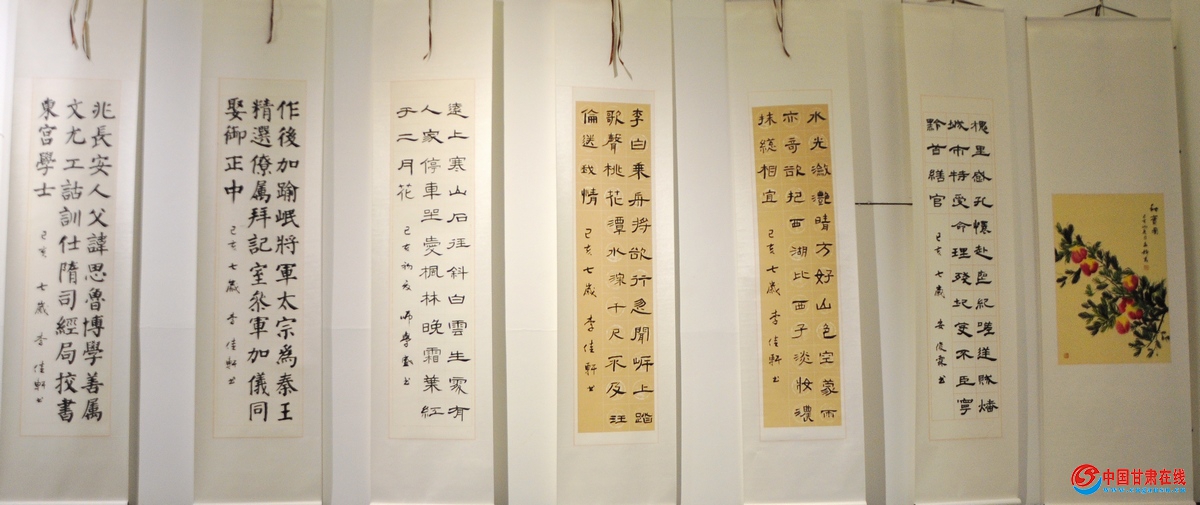 兆長安人父諱思魯博學善属
文尤工詁訓仕隋司經局挍書
東宮學士 己亥 七歲 李佳軒书
作後加踰岷將軍太宗為秦王
精選僚属拜記室參軍加儀同
娶御正中 己亥 七歲 李佳軒书
遠上寒山石徑斜白雲生處有
人家停車坐愛楓林晚霜葉紅
于二月花 己亥初夏
李白乘舟將欲行忽聞岸上踏
歌聲桃花潭水深千尺不及汪
倫送我情 己亥 七歲 李佳軒书
水光瀲灧晴方好山色空蒙雨
亦奇欲把西湖比西子淡妝濃
抹總相宜 己亥 七歲 李佳軒书
槐里感孔懷赴喪紀嗟逆賊燔
城市特受命理殘圮芟不臣寧
黔首繕官 己亥 七歲 安俊霖书
中国甘肃在线